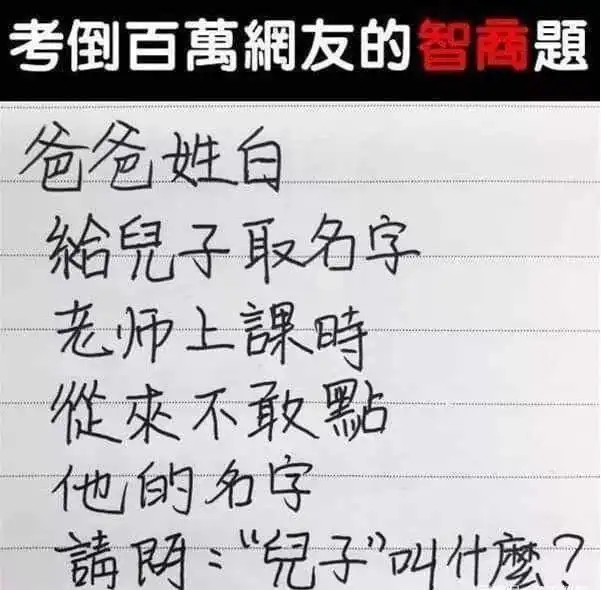 考倒百萬網友的智商題
爸爸姓白
給兒子取名字
老师上課時
從來不敢點
他的名字
請問："兒子"叫什麼?